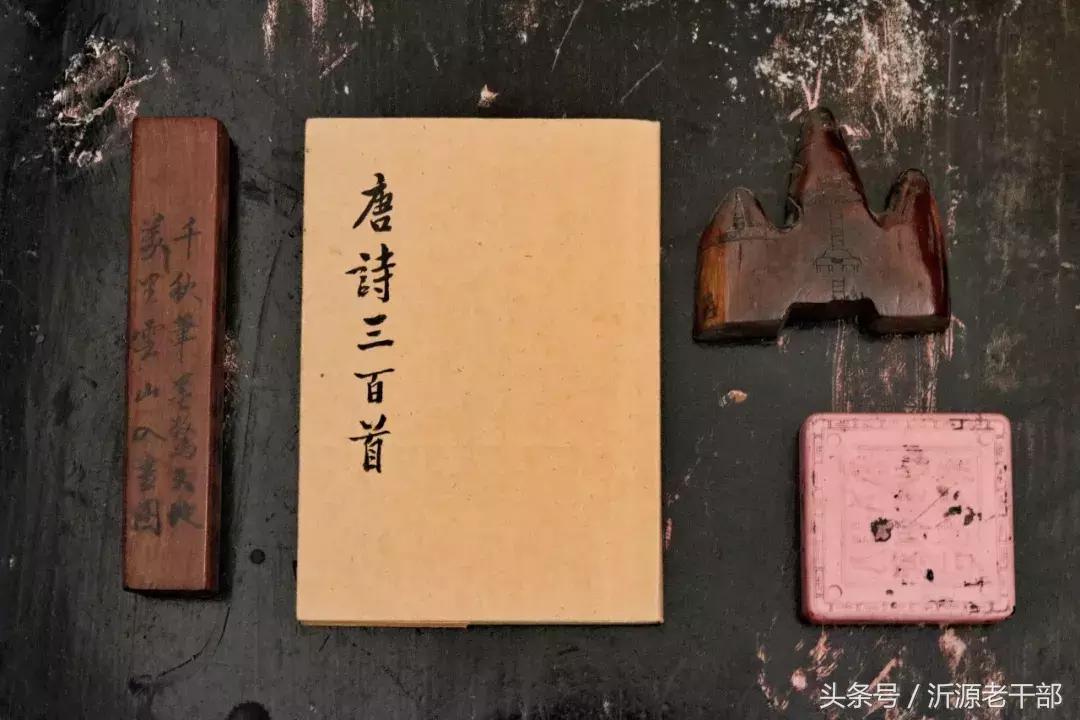 千秋筆墨驚天地
美里雲山入畫圖
唐詩三百首
头条号 / 沂源老干部